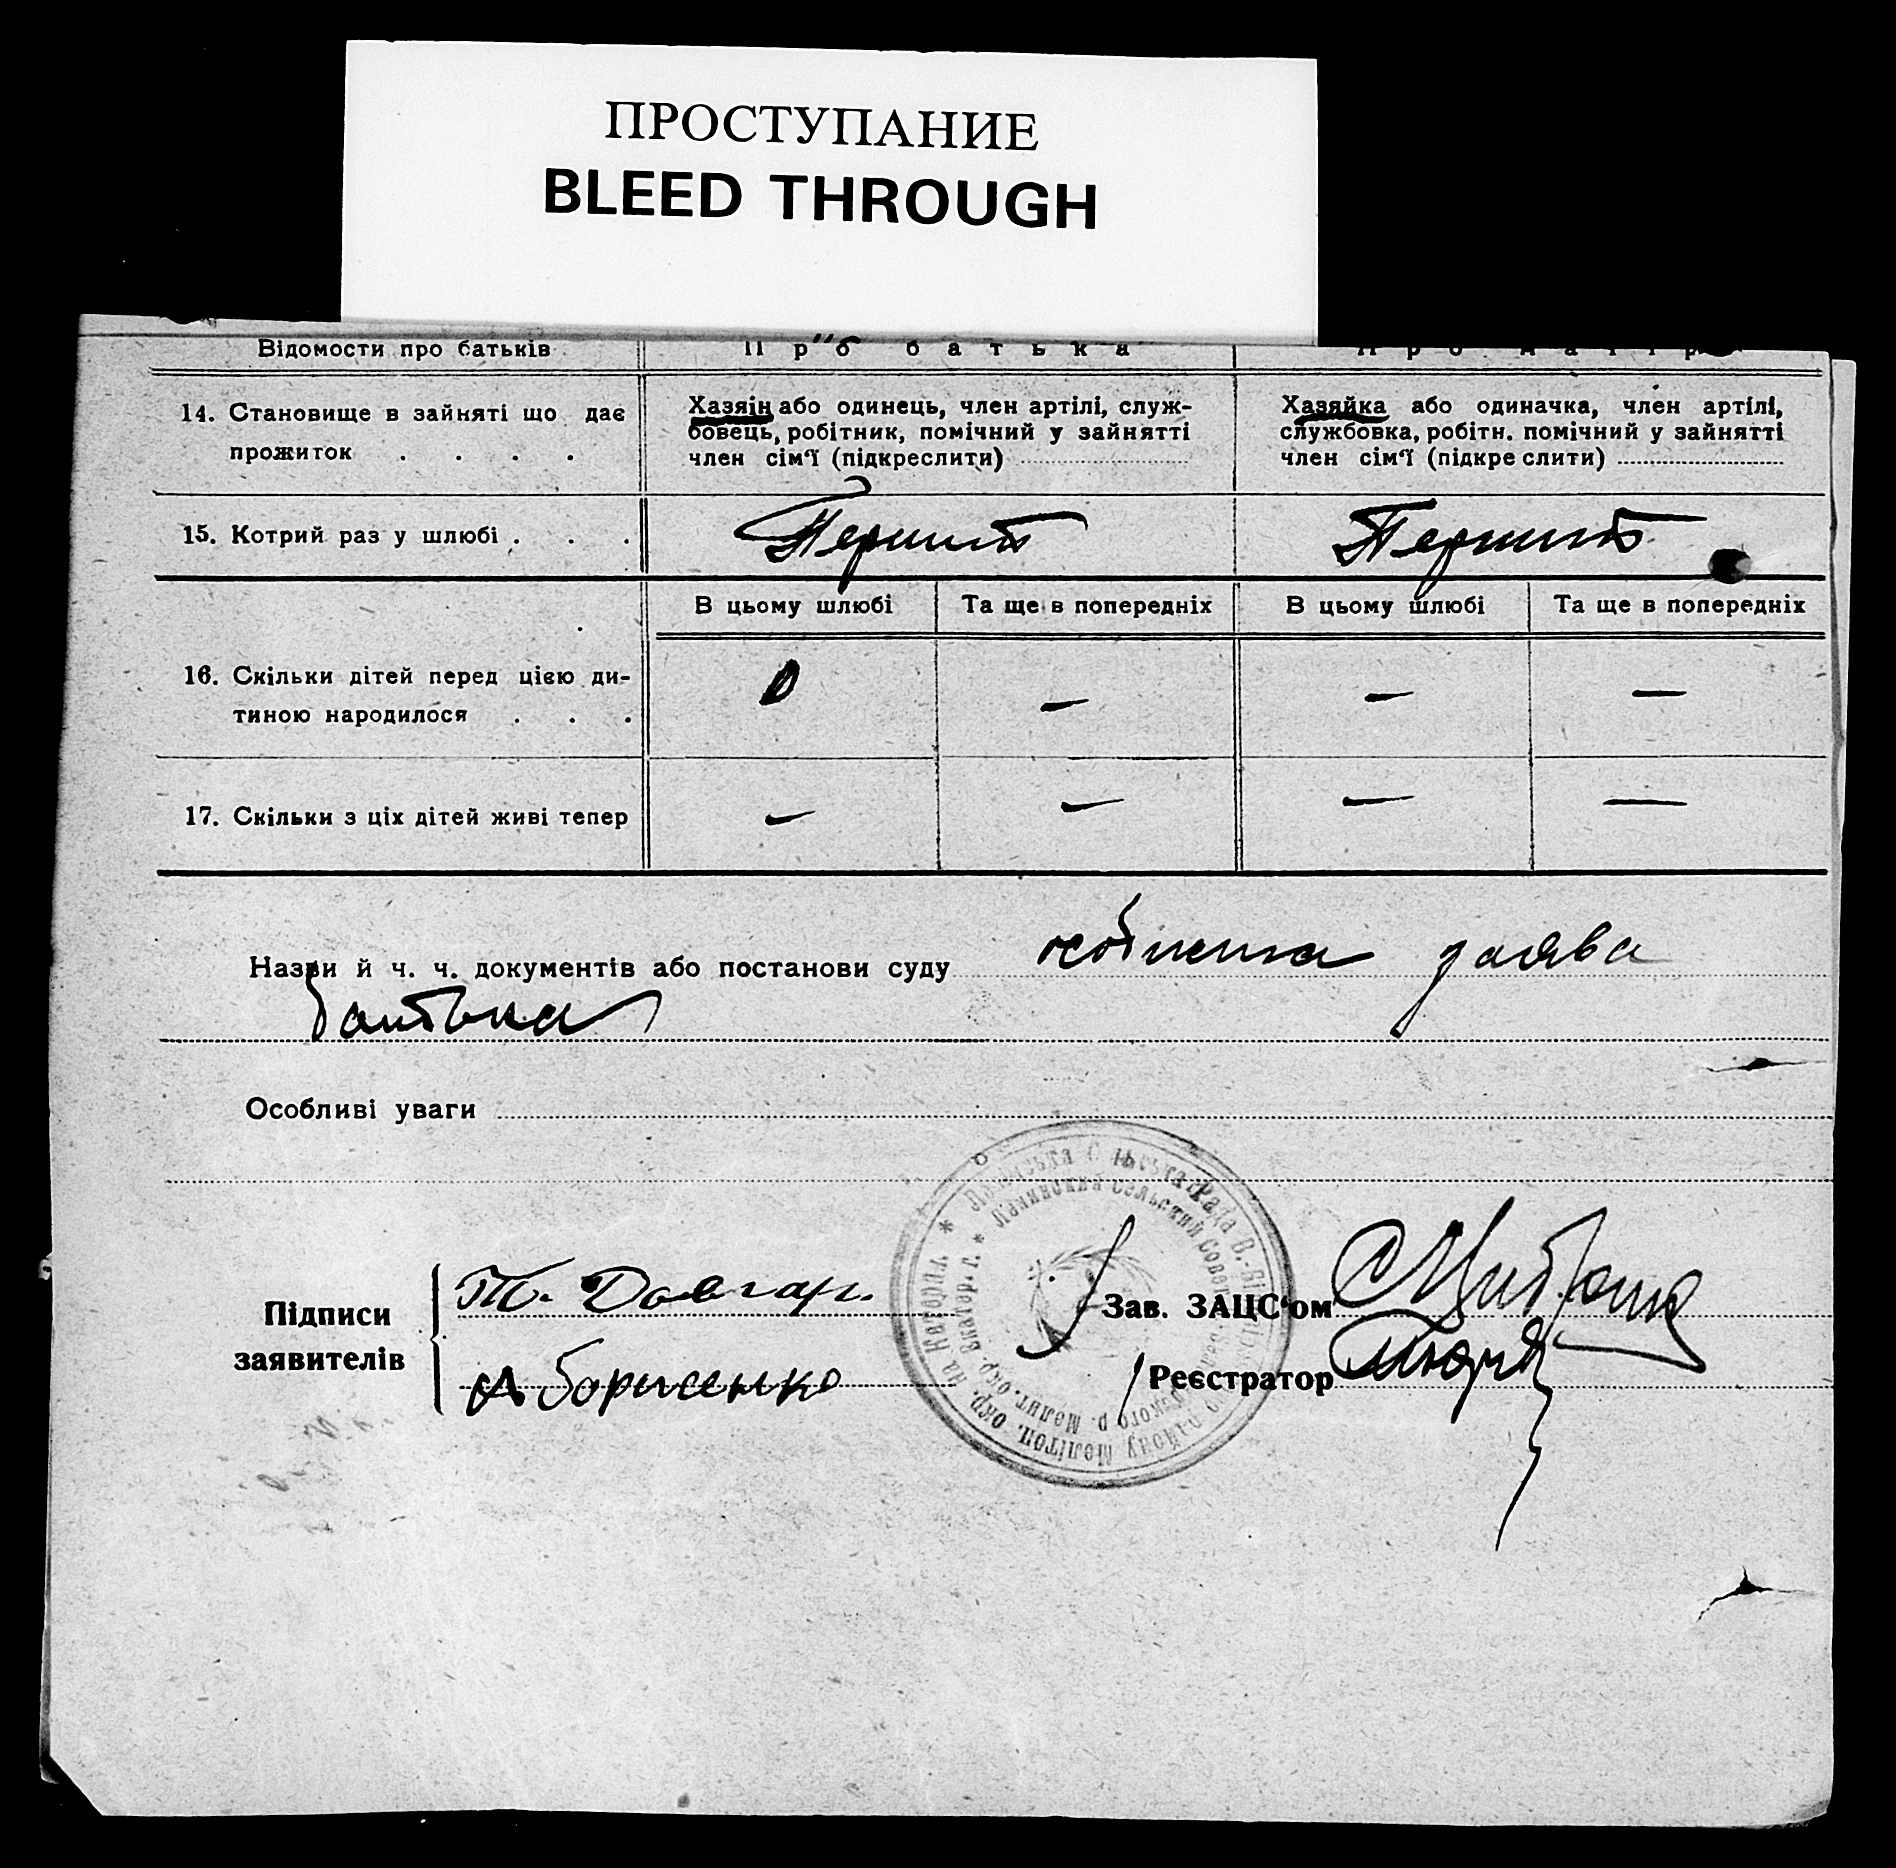 ПРОСТУПАНИЕ
BLEED THROUGH
Відомости про батьків Про батька Про матір
14. Становище в зайняті що дає Хазяїн або одинець, член артілі, служ- Хазяйка або одиначка, член артілі,
бовець, робітник, помічний у зайнятті службовка, робітн. помічний у зайнятті
прожиток . . . . член сім'ї (підкреслити) член сім'ї (підкреслити)
15. Котрий раз у шлюбі . . . Перший Перший
В цьому шлюбі Та ще в попередніх В цьому шлюбі Та ще в попередніх
16. Скільки дітей перед цією ди- 0 — — —
тиною народилося . . .
17. Скільки з ціх дітей живі тепер — — — —
Назви й ч. ч. документів або постанови суду заява
батька
Особливі уваги
Підписи
заявителів
Т. Довгар.
Борисенко
Зав. ЗАЦС'ом
Реєстратор
Сільська Рада
Сельский Совет